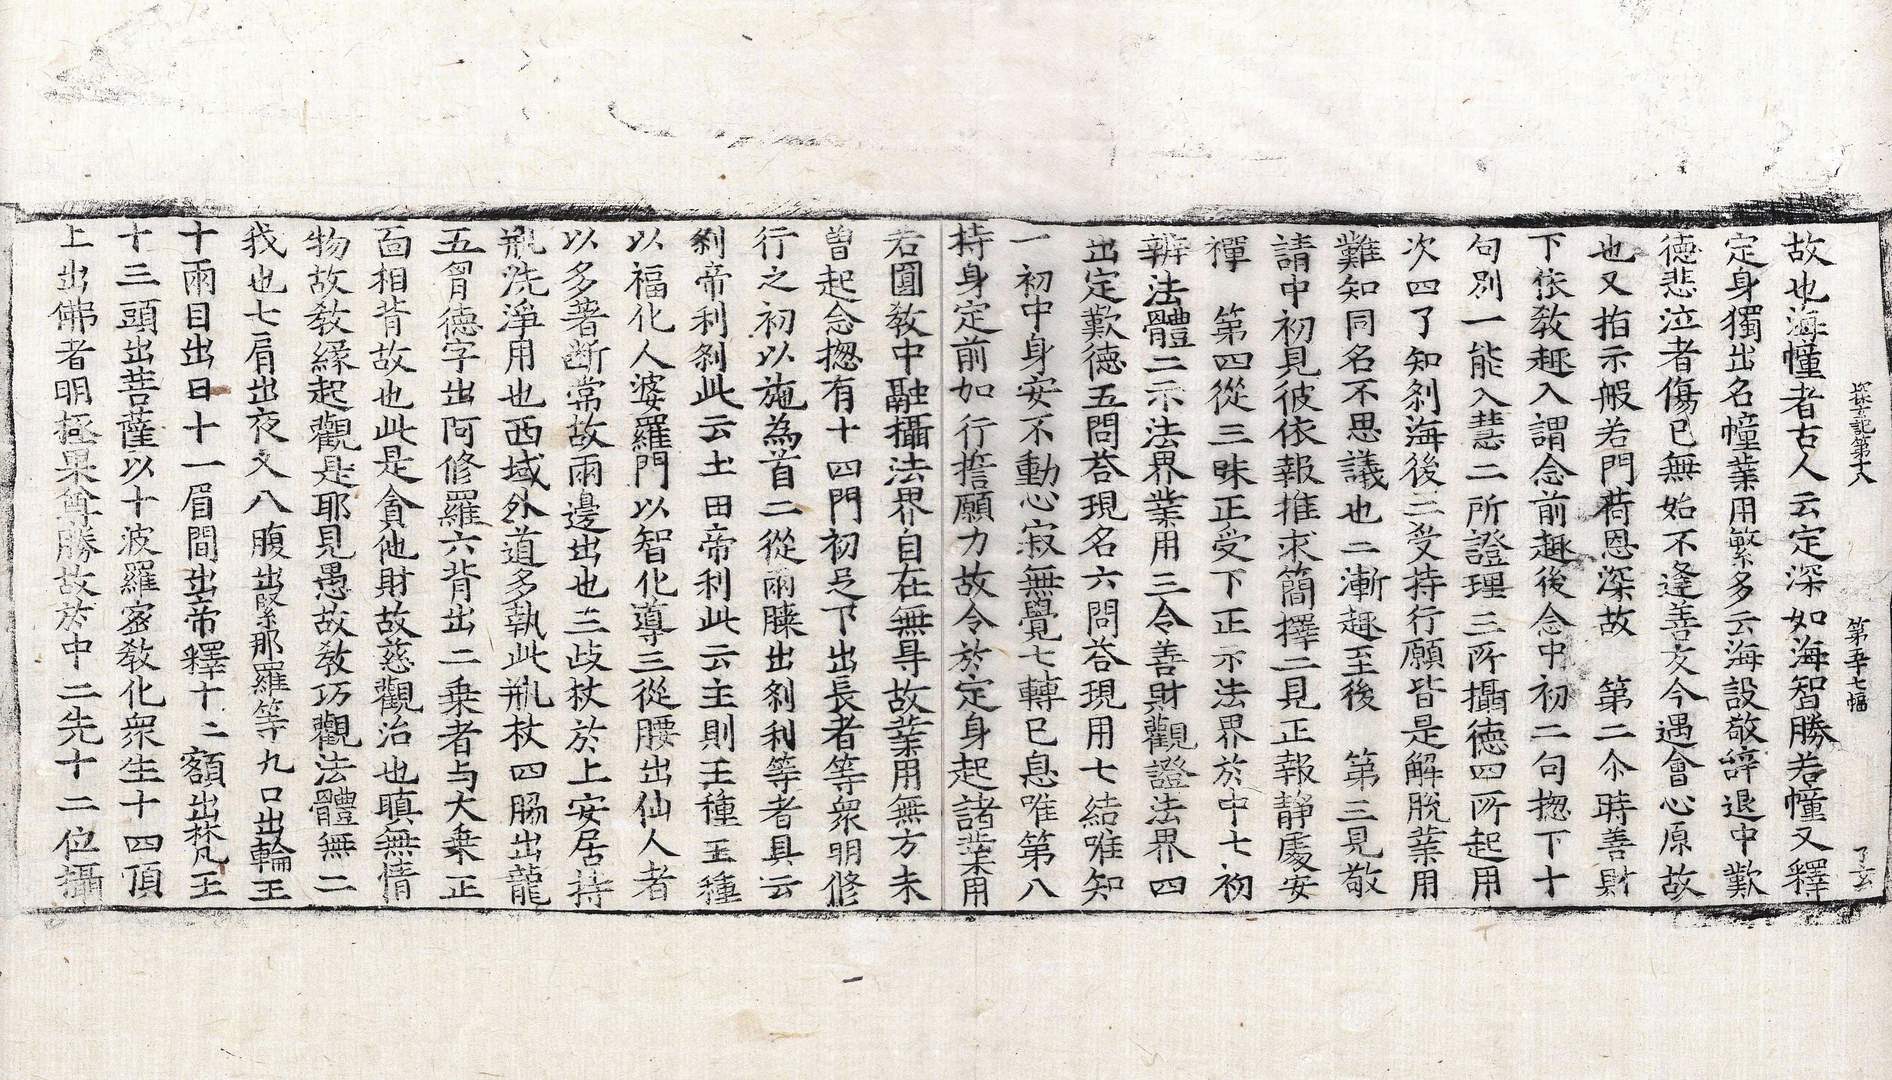 探玄記第十八　第五十七幅　了玄
故也海幢者古人云定深如海智勝若幢又釋
定身獨出名幢業用繁多云海設敬辝退中歎
德悲泣者傷已無始不逢善友今遇會心原故
也又指示般若門荷恩深故　第二尒時善財
下依敎趣入謂念前趣後念中初二句揔下十
句別一能入慧二所證理三所攝德四所起用
次四了知刹海後三受持行願皆是解脫業用
難知同名不思議也二漸趣至後　第三見敬
請中初見彼依報推求簡擇二見正報靜處安
禪　第四從三昧正受下正示法界於中七初
辨法體二示法界業用三令善財觀證法界四
出定歎德五問荅現名六問荅現用七結唯知
一初中身安不動心寂無覺七轉已息唯第八
持身定前加行擔願力故令於定身起諸業用
若圓敎中融攝法界自在無㝵故業用無方未
曾起念揔有十四門初足下出長者等衆明修
行之初以施為首二從兩膝出刹利等者具云
刹帝利刹此云土田帝利此云主則王種王種
以福化人婆羅門以智化導三從腰出仙人者
以多著断常故兩邊出也三歧杖於上安居持
瓶洗淨用也西域外道多執此瓶杖四脇出龍
五胷德字出阿修羅六背出二乘者与大乗正
面相背故也此是貪他財故慈觀治也瞋無情
物故敎緣起觀是耶見愚故敎巧觀法體無二
我也七肩出夜叉八腹出緊那羅等九口出輪王
十兩目出日十一眉間出帝釋十二額出梵王
十三頭出菩薩以十波羅蜜敎化衆生十四頂
上出佛者明極果尊勝故於中二先十二位攝